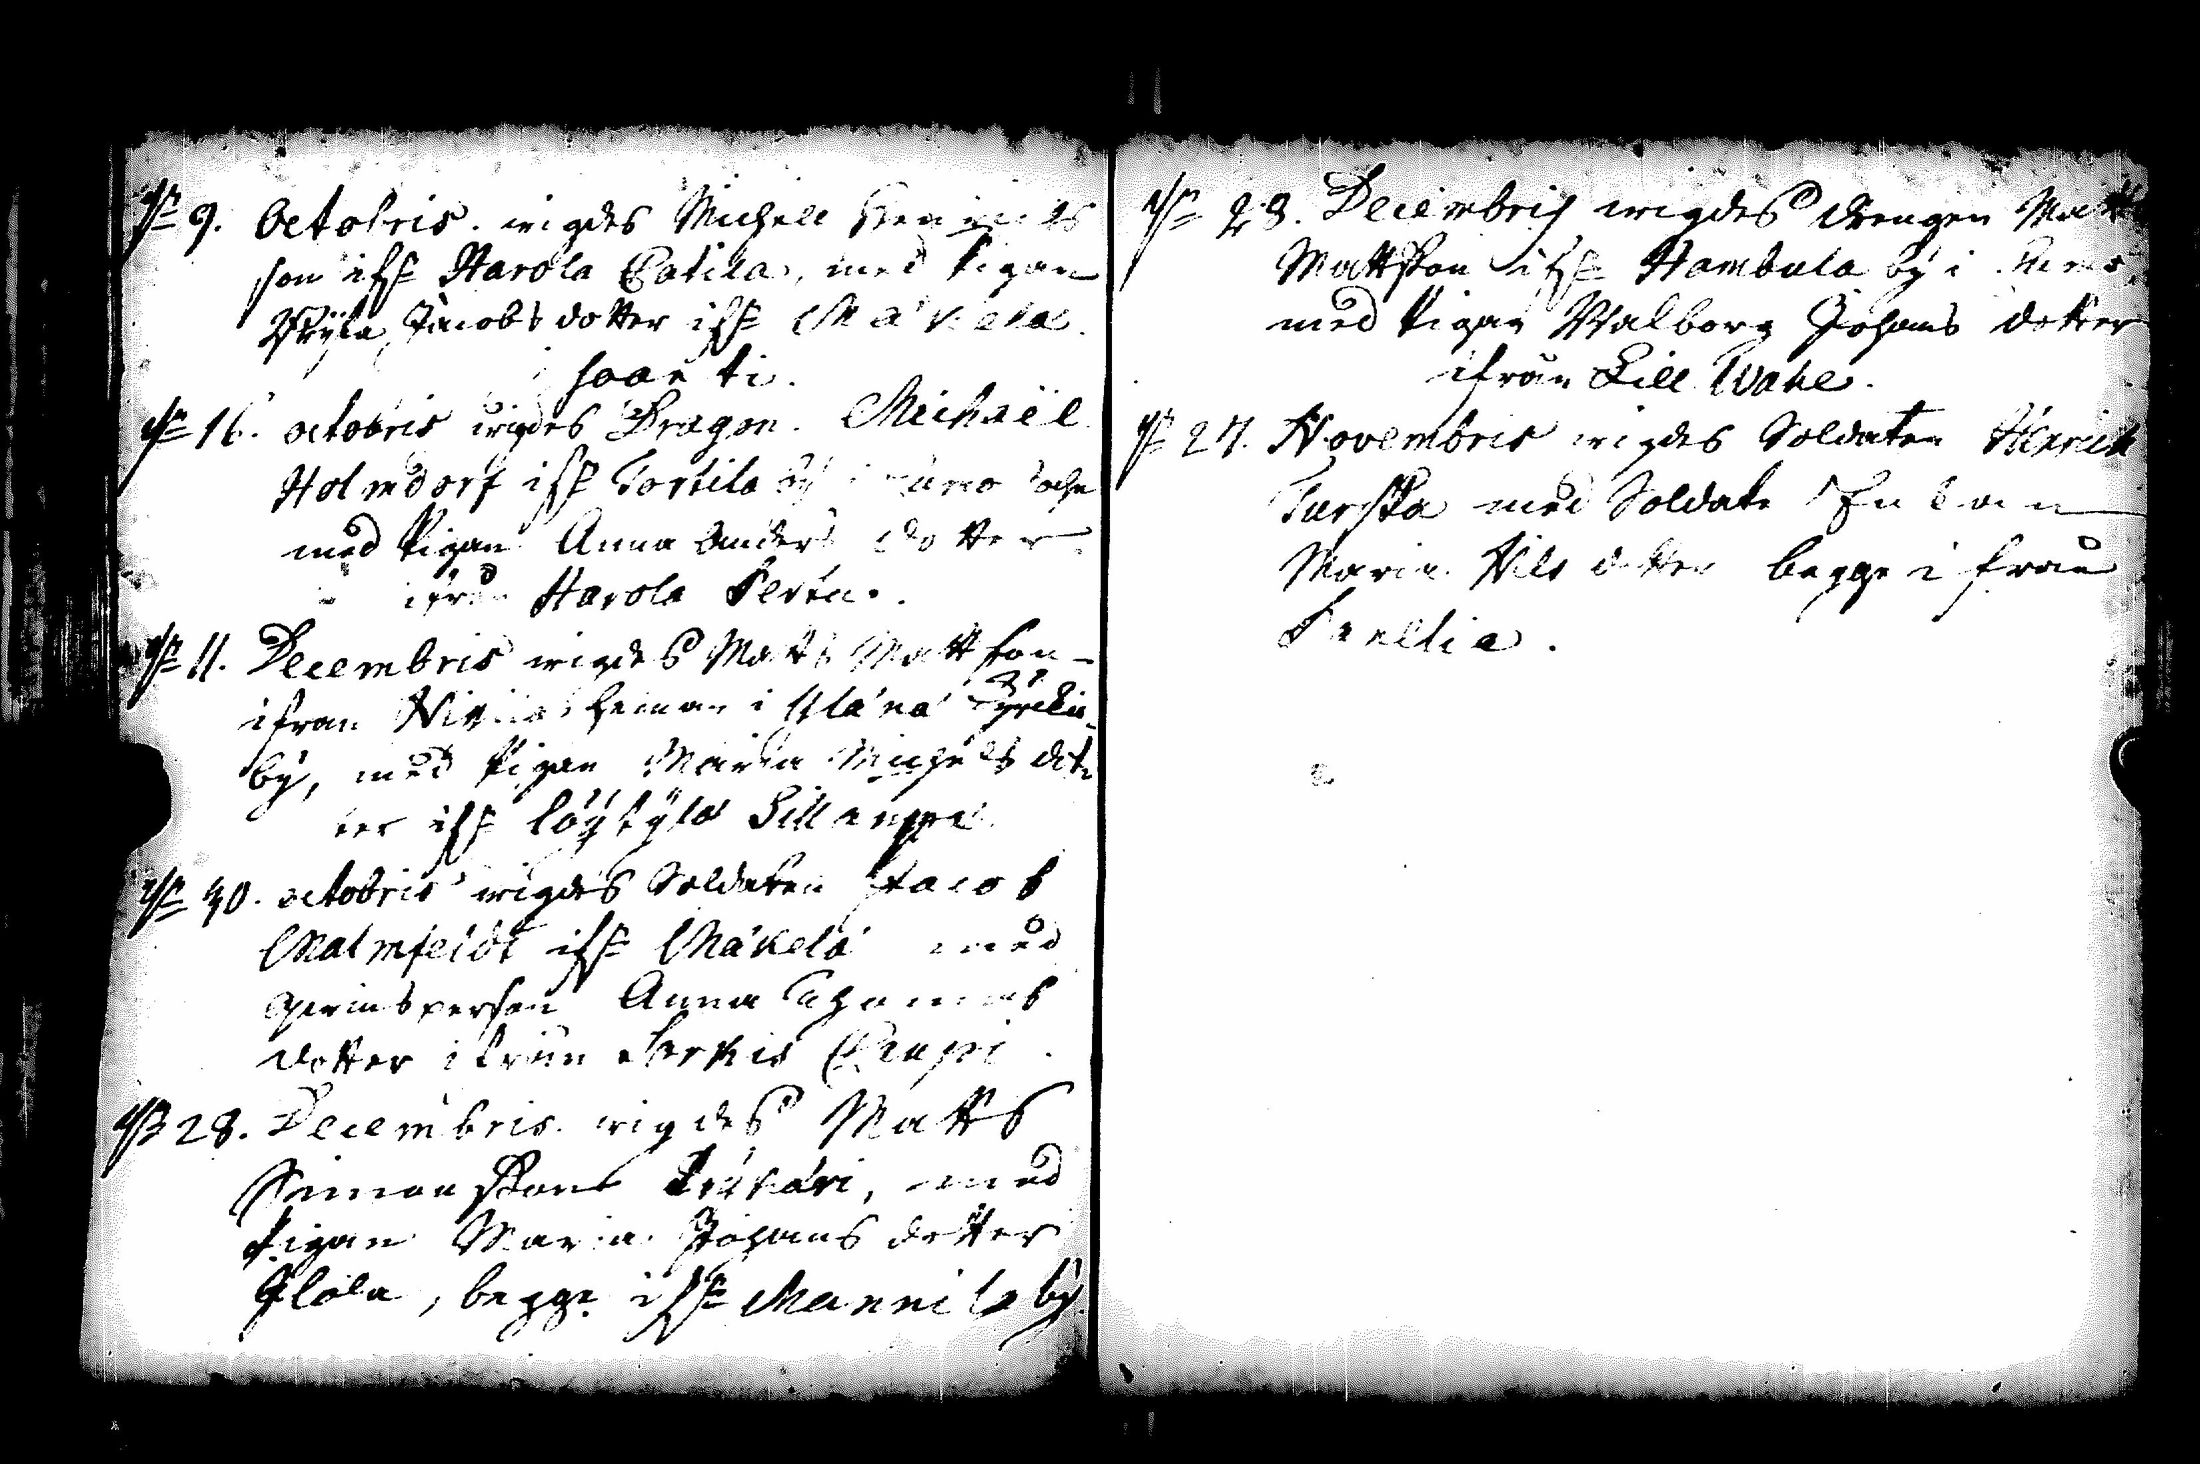 9. octobris. wigdes Michell Henrichs
son ifr Harola Eatila, med Pigan
Jacobs dotter ifr Mäkelä.
16. octobris wigdes Dragon. Michaël
Holmdorf ifr Tortila by i
med Pigan Anna Anders dotter
ifrån Harola Perta.
11. Decembris wigdes Matts Mattson
ifran heman i Yläne Kyrckio
by, med Pigan Maria Michels dot
ter ifr Löytylä Sillanpä
30. octobris wigdes Soldaten Jacob
Malmfeldt ifr Mäkelä med
qwinspersson Anna Thomas
dotter ifrån Sorkis
28. Decembris. wigdes Matts
Simonsson med
Pigan Maria Johans dotter
begge ifr Mannila by
28. Decembris wigdes drengen Matts
Mattsson ifr Hambula by i
med Pigan Walborg Johans dotter
ifrån Lill Wahe.
27. Novembris wigdes Soldaten Henrich
Turska med Soldate Enkan
Maria Nils dotter begge ifrån
Panelia.